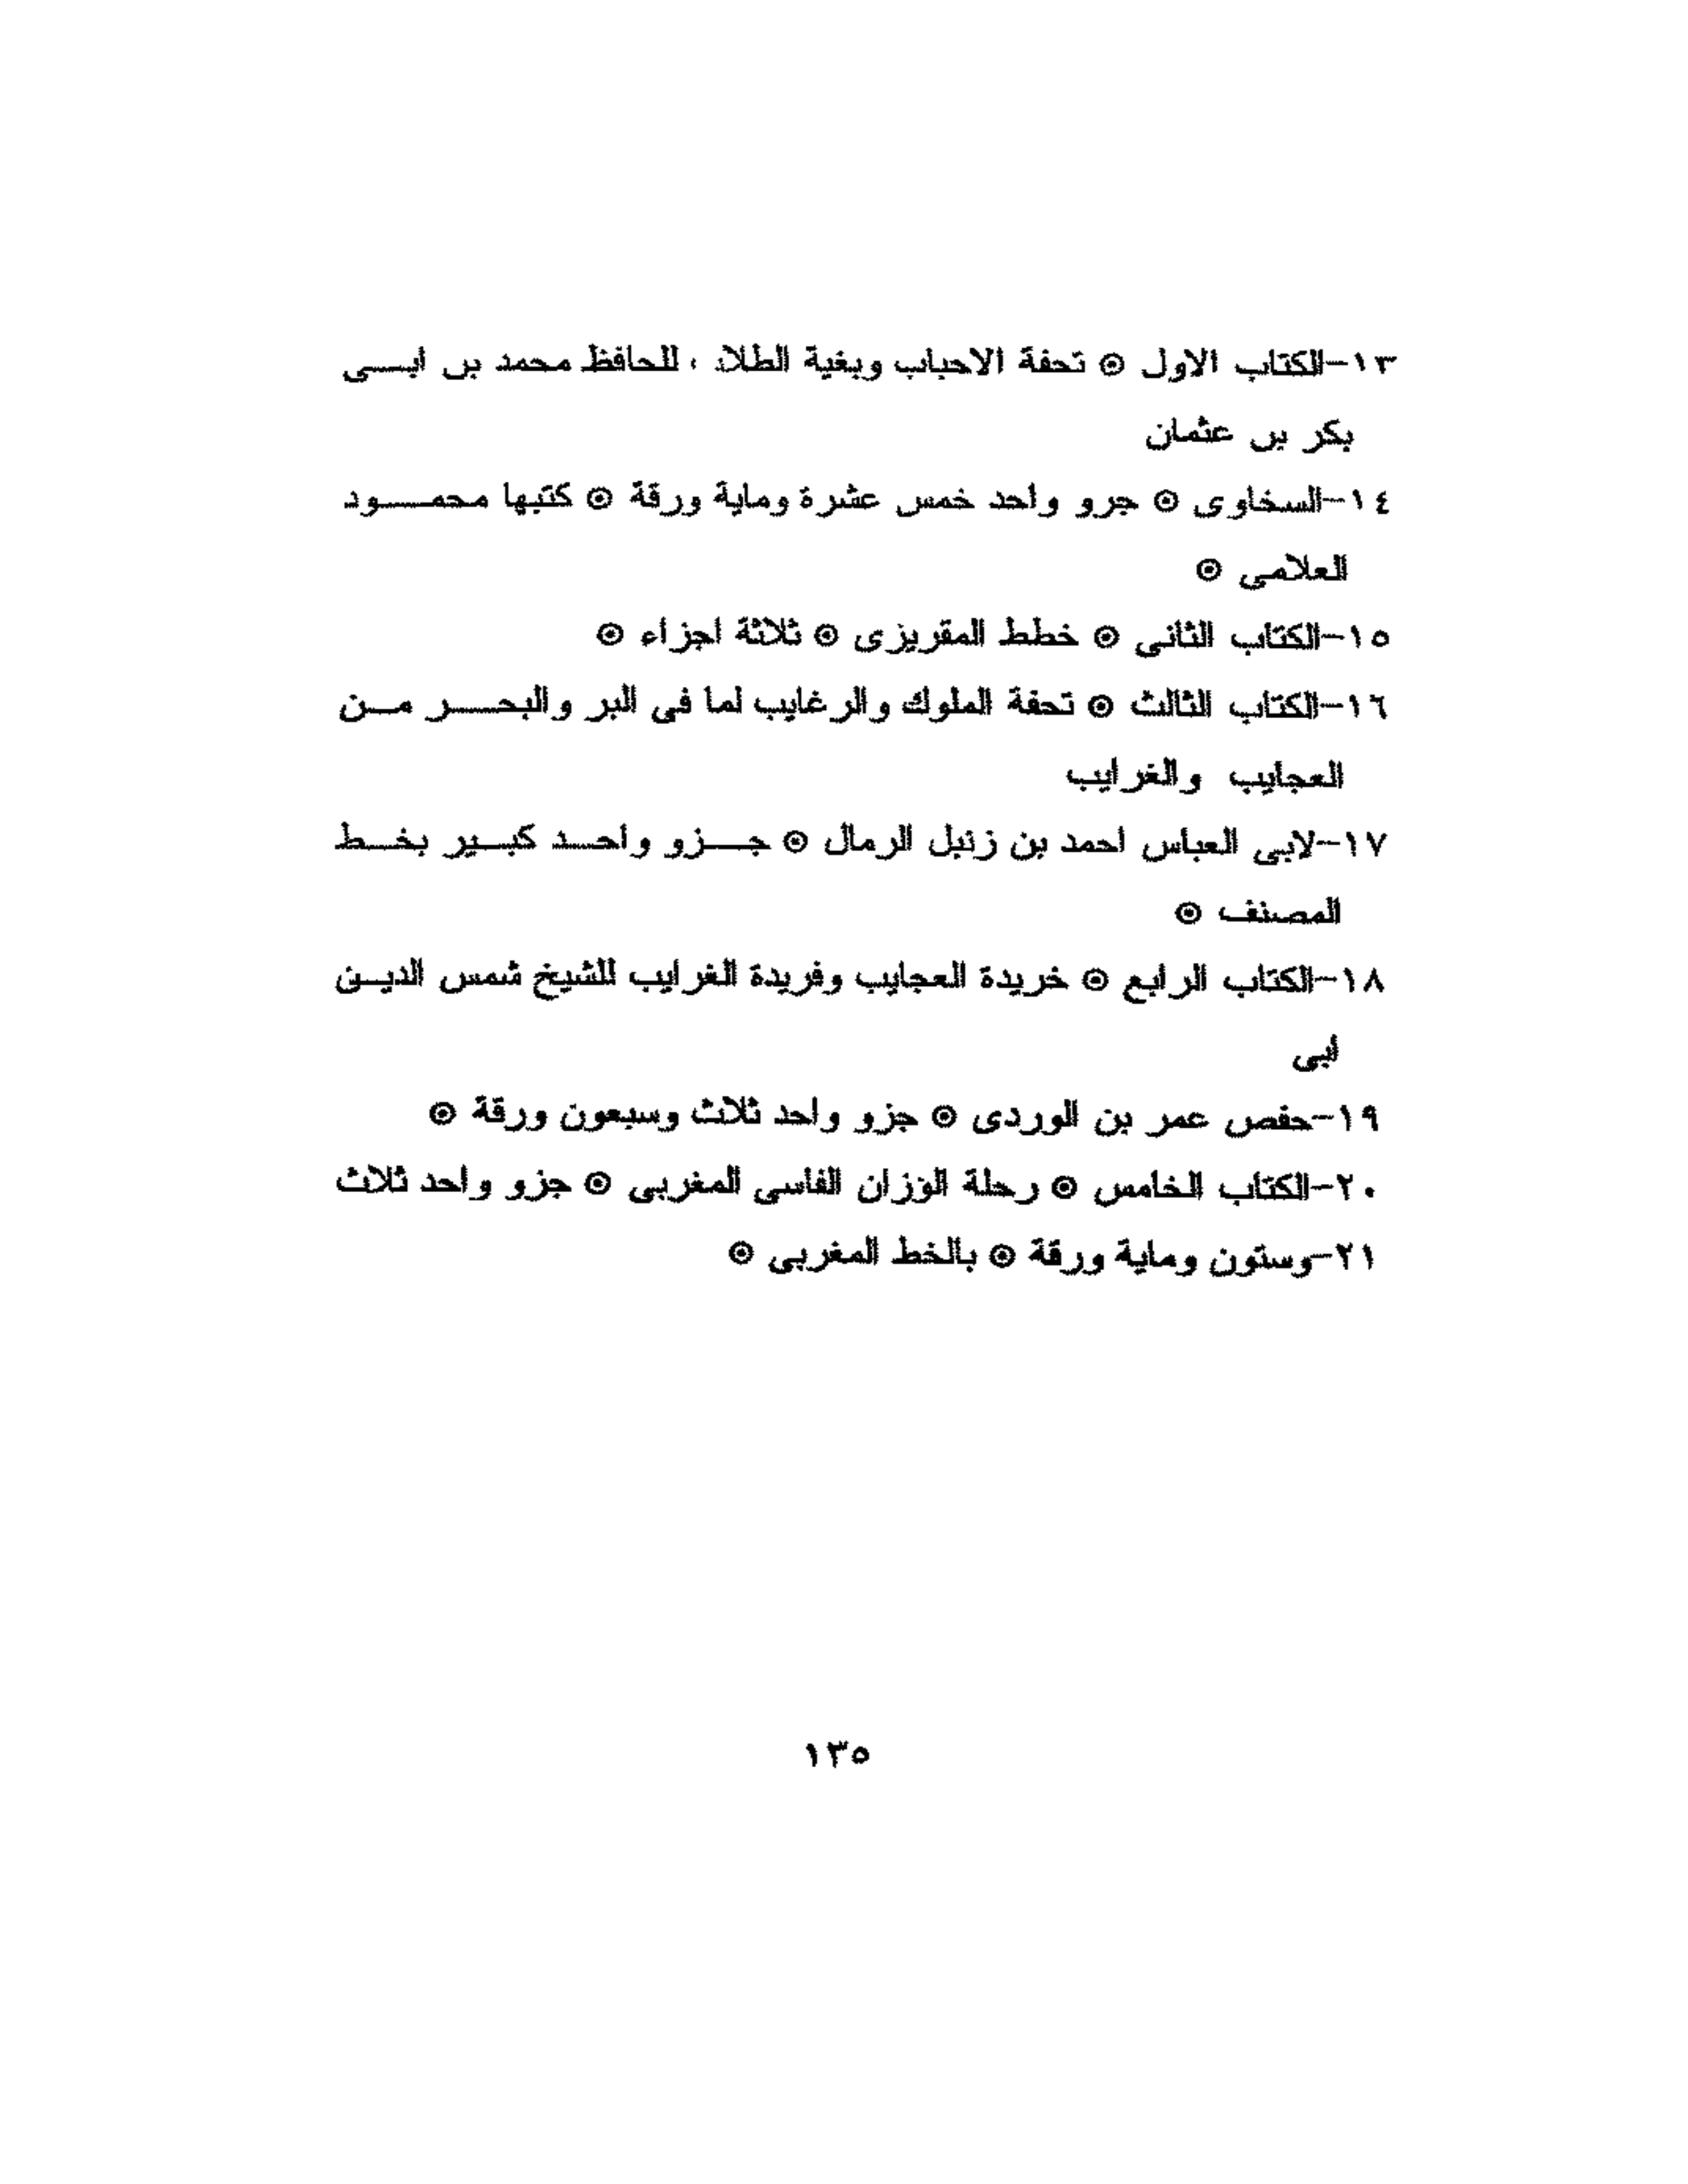 ١٣-الكتاب الاول ⊙ تحفة الاحباب وبغية الطلاب للحافظ محمد بن ابى
بكر بن عثمان
١٤-السخاوى ⊙ جرو واحد خمس عشرة وماية ورقة ⊙ كتبها محمود
العلامى ⊙
١٥-الكتاب الثانى ⊙ خطط المقريزى ⊙ ثلاثة اجزاء ⊙
١٦-الكتاب الثالث ⊙ تحفة الملوك والرغايب لما فى البر والبحر من
العجايب والغرايب
١٧-لابى العباس احمد بن زنبل الرمال ⊙ جزو واحد كبير بخط
المصنف ⊙
١٨-الكتاب الرابع ⊙ خريدة العجايب وفريدة الغرايب للشيخ شمس الدين
ابى
١٩-حفص عمر بن الوردى ⊙ جزو واحد ثلاث وسبعون ورقة ⊙
٢٠-الكتاب الخامس ⊙ رحلة الوزان الفاسى المغربى ⊙ جزو واحد ثلاث
٢١-وستون وماية ورقة ⊙ بالخط المغربى ⊙
١٣٥